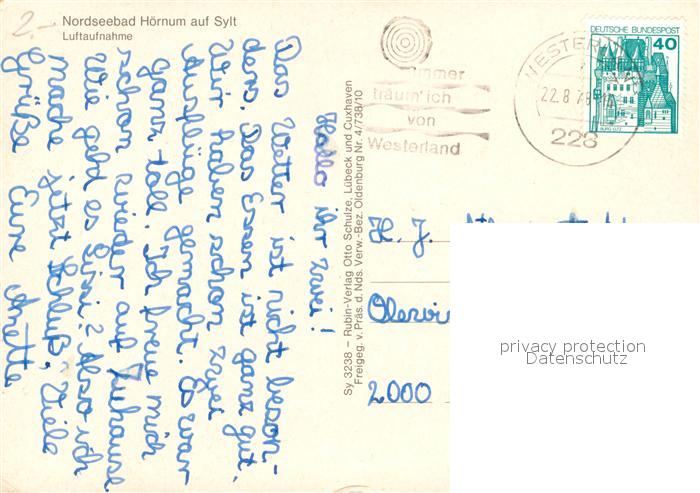 2.-
Nordseebad Hörnum auf Sylt
Luftaufnahme
Hallo ihr zwei!
Das Wetter ist nicht beson-
ders. Das Essen ist ganz gut.
Wir haben schon zwei
Ausflüge gemacht. Es war
ganz toll. Ich freue mich
schon wieder auf Zuhause
Wie geht es Susi? Also ich
mache jetzt Schluß, Viele
Grüße Eure
Sy 3238 – Rubin-Verlag Otto Schulze, Lübeck und Cuxhaven
Freigeg. v. Präs. d. Nds. Verw.-Bez. Oldenburg Nr. 4/738/10
träum' ich
von
Westerland
22.8.
228
DEUTSCHE BUNDESPOST
40
BURG ELTZ
H. J.
2000
privacy protection
Datenschutz